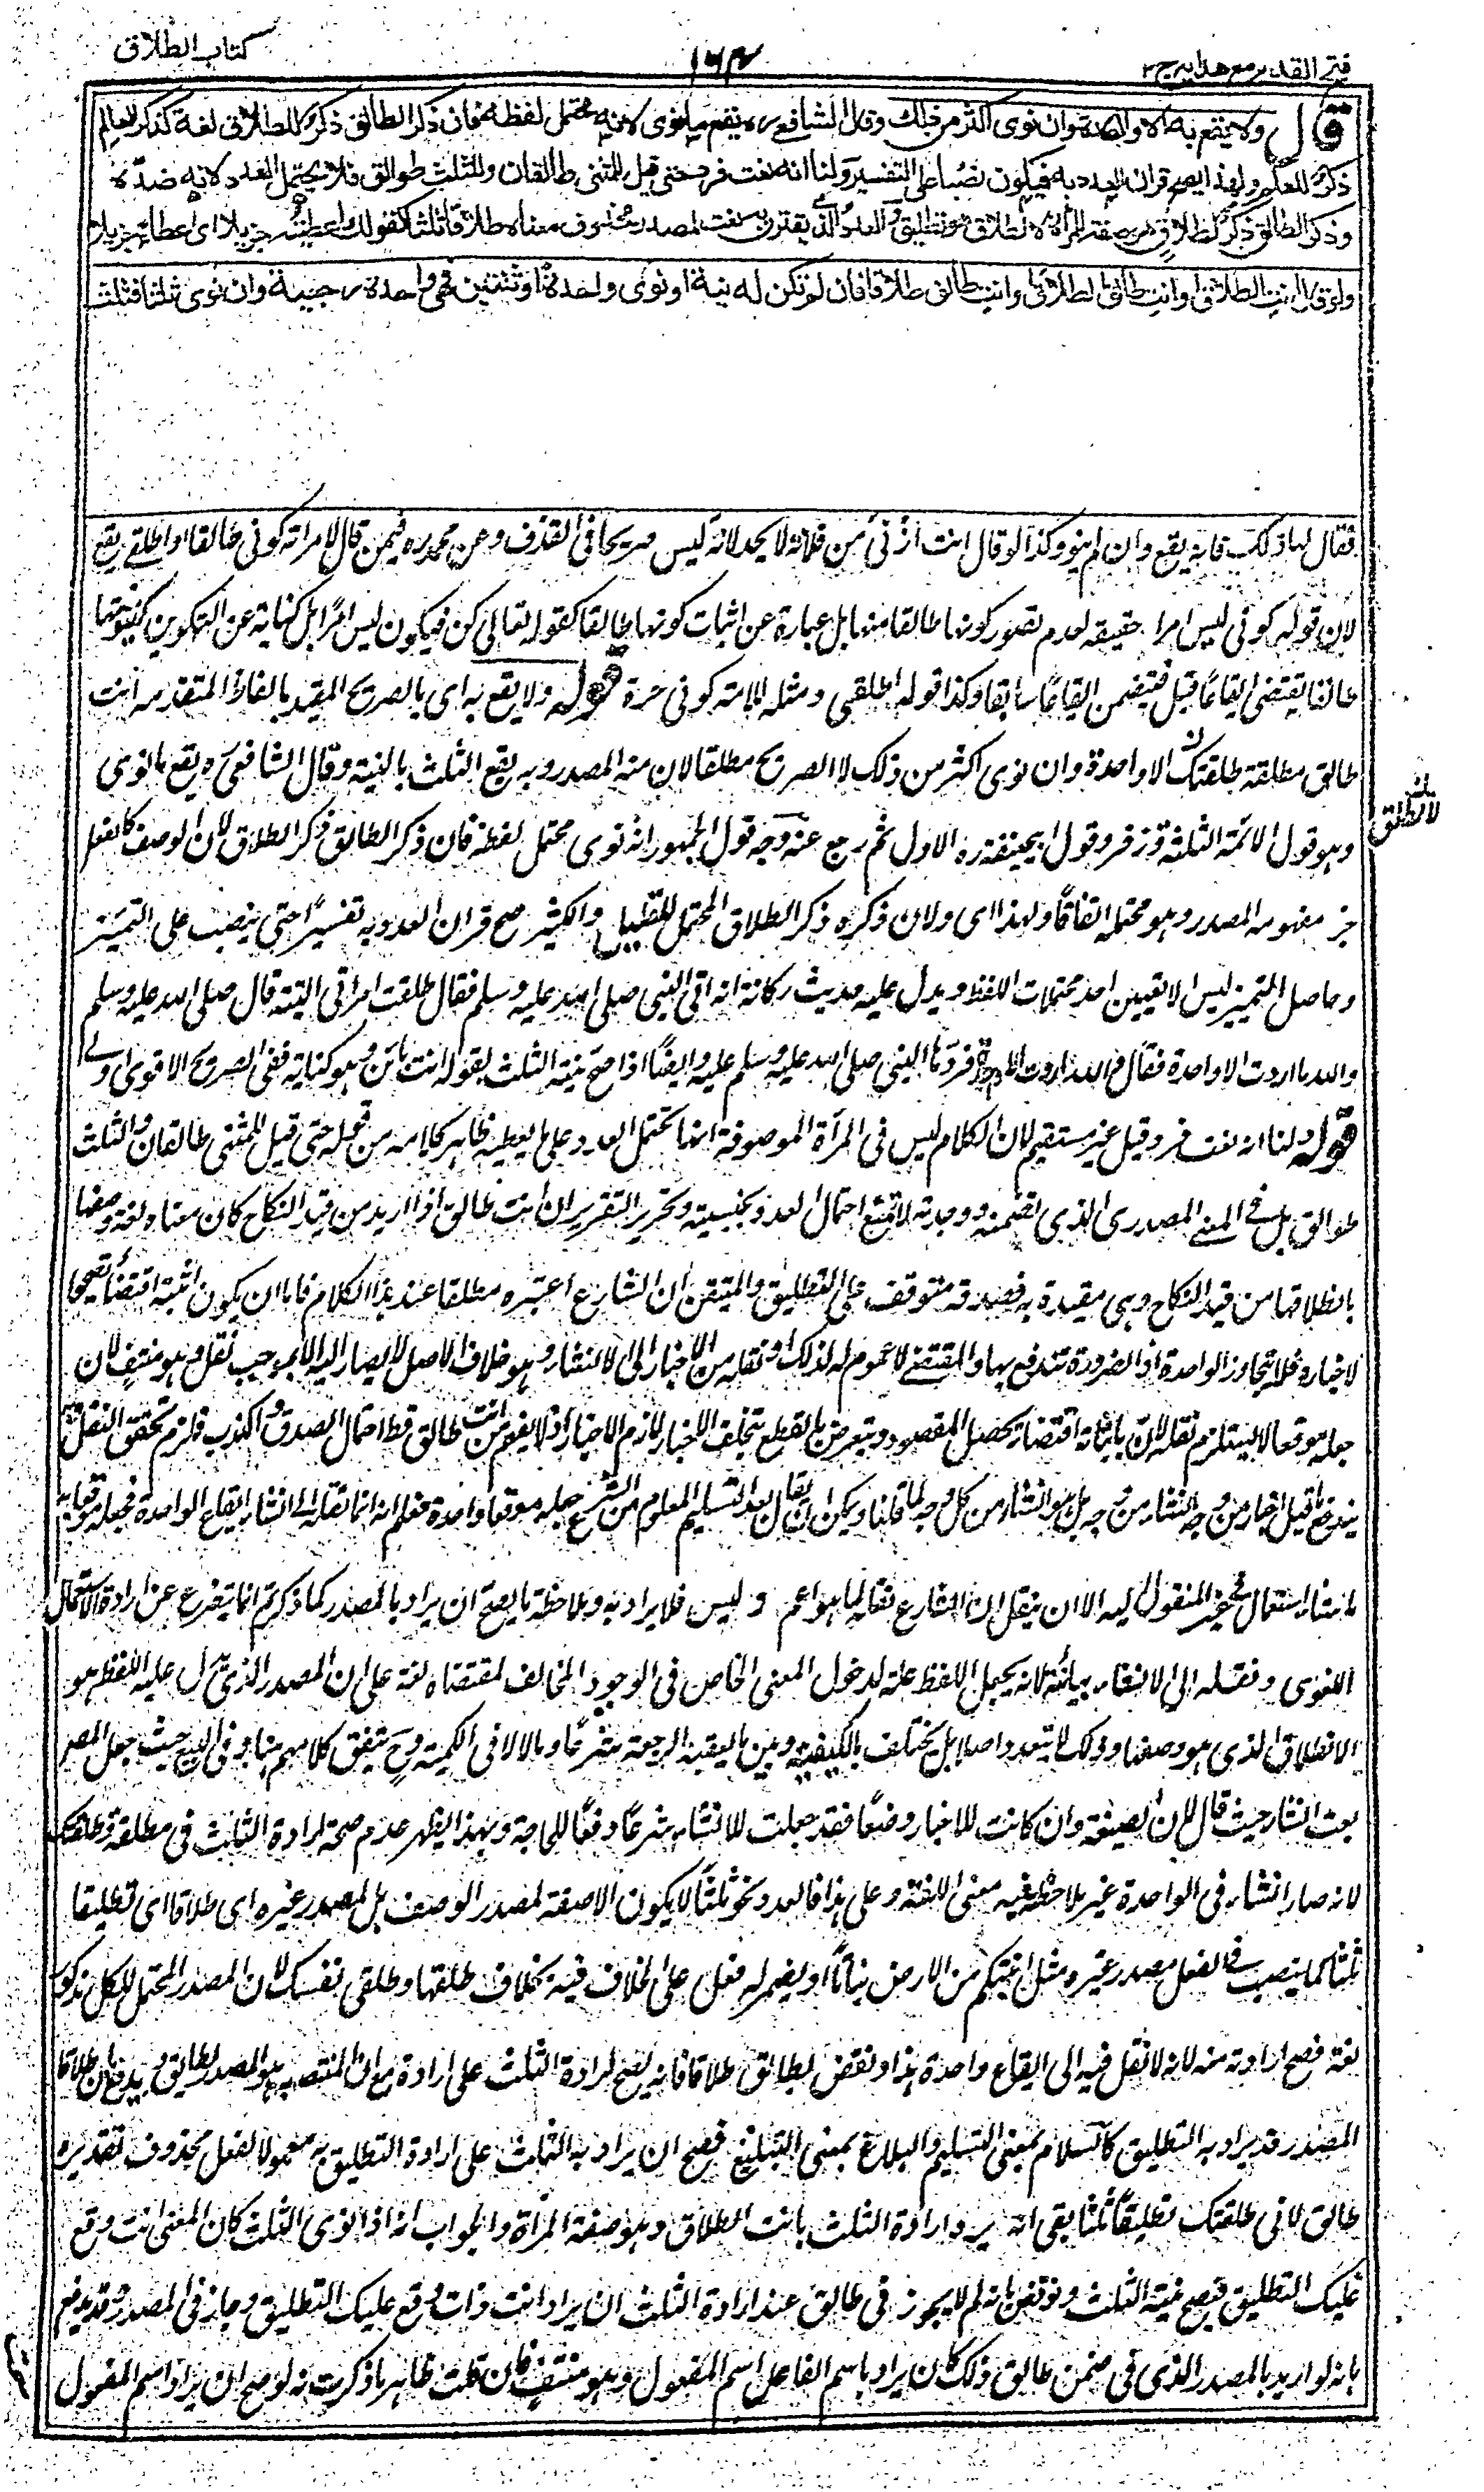 فتح القدير مع هدايه ج ٢
كتاب الطلاق
قال ولا يقع به الا واحدة وان نوى اكثر من ذلك وقال الشافعي ره يقع ما نوى لانه محتمل لفظه فان ذكر الطالق ذكر للطلاق لغة كذكر العالم
ذكر للعلم ولهذا يصح قران العدد به فيكون نصبا على التفسير ولنا انه نعت فرد حتى قيل للمثنى طالقان وللثلث طوالق فلا يحتمل العدد لانه ضده
وذكر الطالق ذكر لطلاق هو صفة للمرأة لا لطلاق هو تطليق والعدد الذي يقترن به نعت لمصدر محذوف معناه طلاقا ثلثا كقولك اعطيته جزيلا اى عطاء جزيلا
ولو قال انت الطلاق او انت طالق الطلاق او انت طالق طلاقا فان لم تكن له نية او نوى واحدة او ثنتين فهي واحدة رجعية وان نوى ثلثا فثلث
فقال لها ذلك فانه يقع وان لم ينو وكذا لو قال انت ازنى من فلانة لا يحد لانه ليس صريحا في القذف وعن محمد ره فيمن قال لامراته كونى طالقا او اطلقى يقع
لان قوله كونى ليس امرا حقيقة لعدم تصور كونها طالقا منها بل عبارة عن اثبات كونها طالقا كقوله تعالى كن فيكون ليس امرًا بل كناية عن التكوين كينونتها
طالقا يقتضى ايقاعًا قبل فيتضمن ايقاعًا سابقا وكذا قوله اطلقى ومثله للامة كونى حرة قوله ولا يقع به اى بالصريح المقيد بالفاظ المتقدمة انت
طالق مطلقة طلقتك الا واحدة وان نوى اكثر من ذلك لا الصريح مطلقا لان منه المصدر وبه يقع الثلث بالنية وقال الشافعى ره يقع ما نوى
وهو قول الائمة الثلثة وزفر وقول ابيحنيفة ره الاول ثم رجع عنه وجه قول الجمهور انه نوى محتمل لفظه فان ذكر الطالق ذكر الطلاق لان الوصف كالفعل
جزء مفهومه المصدر وهو محتمله اتفاقًا ولهذا اى ولان ذكره ذكر الطلاق المحتمل للقليل والكثير صح قران العدد به تفسيرًا حتى ينصب على التمييز
وحاصل التمييز ليس الا تعيين احد محتملات اللفظ ويدل عليه حديث ركانة انه اتى النبى صلى الله عليه وسلم فقال طلقت امراتى البتة قال صلى الله عليه وسلم
والله ما اردت الا واحدة فقال والله ما اردت الا واحدة فردها النبى صلى الله عليه وسلم عليه وايضًا اذا صح نية الثلث بقوله انت بائن وهو كناية ففى الصريح الاقوى اولى
قوله ولنا انه نعت فرد قيل غير مستقيم لان الكلام ليس فى المرأة الموصوفة انها تحتمل العدد على ما يعطيه ظاهر كلامه من قوله حتى قيل للمثنى طالقان وللثلث
طوالق بل فى المعنى المصدرى الذى تضمنه ووحدته لا تمنع احتمال العدد بجنسيته وتحرير التقرير ان انت طالق اذا اريد من قيد النكاح كان معناه لغة وصفها
بانطلاقها من قيد النكاح وهى مقيدة به فصدقه متوقف على التطليق والمتيقن ان الشارع اعتبره مطلقا عند هذا الكلام فاما ان يكون اثبته اقتضاءً تصحيحا
لاخباره فلا يتجاوز الواحدة اذ الضرورة تندفع بها والمقتضى لا عموم له لذلك او نقله من الاخبار الى الانشاء وهو خلاف الاصل لا يصار اليه الا بموجب نقل وهو منتف لان
جعله موقعا لا يستلزم نقله لان باثباته اقتضاء يحصل المقصود ويتعرض بالقطع بتخلف الاخبار لازم الاخبار اذ لا يفهم من انت طالق قط احتمال الصدق والكذب فلزم تحقق النقل
يندفع ما قيل اخبار من وجه انشاء من وجه بل هو انشاء من كل وجه لما قلنا ويمكن ان يقال بعد التسليم المعلوم من الشرع جعله موقعا واحدة فعلم انه انما نقله الى انشاء ايقاع الواحدة فجعله موقعا به
ما شاء استعمال فى غير المنقول اليه الا ان ينقل ان الشارع نقله لما هو اعم وليس فلا يراد به وملاحظة ما يصح ان يراد بالمصدر كما ذكرتم انما يتفرع عن ارادة الاستعمال
اللغوى ونقله الى الانشاء يباينه لانه يجعل اللفظ علة لدخول المعنى الخاص فى الوجود المخالف لمقتضاه لغة على ان المصدر الذى يدل عليه اللفظ هو
الانطلاق الذى هو وصفها وذلك لا يتعدد اصلا بل يختلف بالكيفية وبين ما يعقبه الرجعة شرعًا وما لا لا فى الكمية وح يتفق كلامهم هنا وفى البيع حيث جعل المصر
بعت انشاء حيث قال لان الصيغة وان كانت للاخبار وضعًا فقد جعلت للانشاء شرعًا دفعًا للحاجة وبهذا يظهر عدم صحة ارادة الثلث فى مطلقة وطلقتك
لانه صار انشاء فى الواحدة غير ملاحظ فيه معنى اللغة وعلى هذا فالعدد نحو ثلثًا لا يكون الا صفة لمصدر الوصف بل لمصدر غيره اى طلاقا اى تطليقا
ثلثا كما ينصب فى الفعل مصدر غيره مثل انبتكم من الارض نباتًا او يضمر له فعل على الخلاف فيه بخلاف طلقها وطلقى نفسك لان المصدر المحتمل للكل مذكور
لغة فصح ارادته منه لانه لا نقل فيه الى ايقاع واحدة هذا ونقض بطالق طلاقا فانه يصح ارادة الثلث على ارادة مع ان المنتصب هو المصدر لطالق ويدفع بان طلاقا
المصدر قد يراد به التطليق كالسلام بمعنى التسليم والبلاغ بمعنى التبليغ فصح ان يراد به الثلث على ارادة التطليق به معمولا لفعل محذوف تقديره
طالق لانى طلقتك تطليقًا ثلثا بقى انه يرد ارادة الثلث بانت الطلاق وهو صفة المرأة والجواب انه اذا نوى الثلث كان المعنى انت وقع
عليك التطليق فيصح نية الثلث ونوقض بانه لم لا يجوز فى طالق عند ارادة الثلث ان يراد انت ذات وقع عليك التطليق وجاز فى المصدر وقد يدفع
بانه لو اريد بالمصدر الذى فى ضمن طالق ذلك كان يراد باسم الفاعل اسم المفعول وهو منتف فان قلت ظاهر ما ذكرت انه لو صح ان يراد اسم المفعول